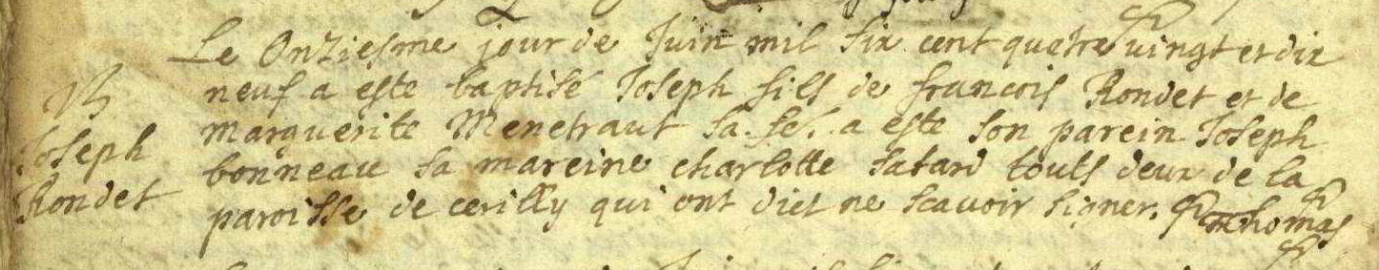 Le Onziesme jour de Juin mil six cent quatre vingt et dix
neuf a este baptisé Joseph fils de francois Rondet et de
marguerite Menetraut sa fe. a este son parein Joseph
bonneau sa mareine charlotte satard touts deux de la
paroisse de cerilly qui ont dict ne scavoir signer. Thomas
B
Joseph
Rondet